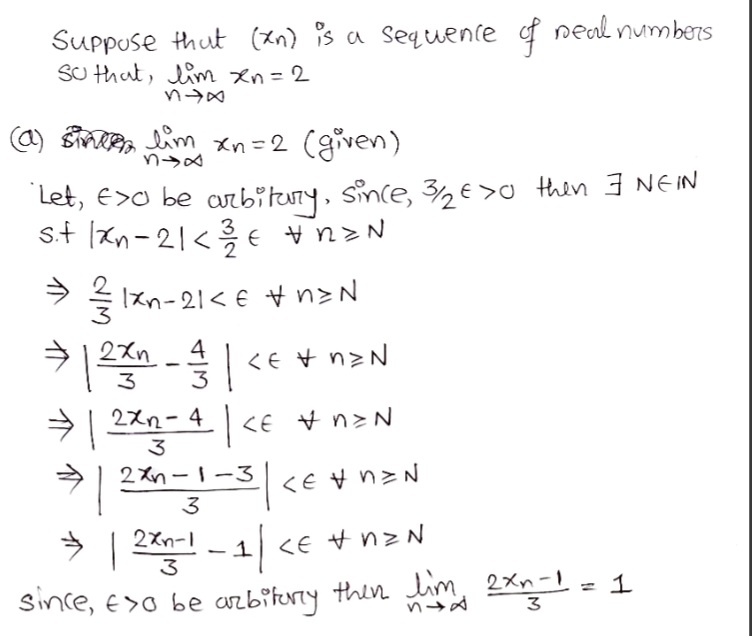 Suppose that (xn) is a sequence of real numbers
so that, lim n→∞ xn = 2
(a) lim n→∞ xn = 2 (given)
Let, ϵ>0 be arbitary, since, 3/2 ϵ>0 then ∃ N∈ℕ
s.t |xn-2| < 3/2 ϵ ∀ n≥N
⇒ 2/3 |xn-2| < ϵ ∀ n≥N
⇒ | 2xn/3 - 4/3 | < ϵ ∀ n≥N
⇒ | (2xn-4)/3 | < ϵ ∀ n≥N
⇒ | (2xn-1-3)/3 | < ϵ ∀ n≥N
⇒ | (2xn-1)/3 - 1 | < ϵ ∀ n≥N
since, ϵ>0 be arbitory then lim n→∞ (2xn-1)/3 = 1